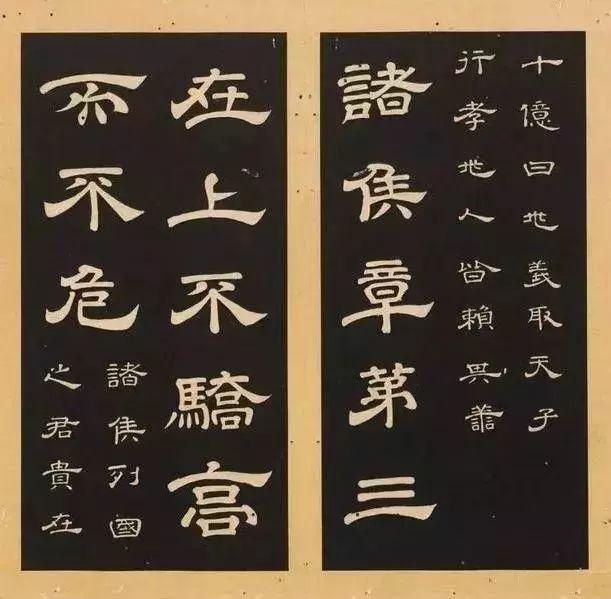 十億曰兆義取天子
行孝兆人皆賴其善
諸侯章第三
在上不驕高
而不危
諸侯列國
之君貴在